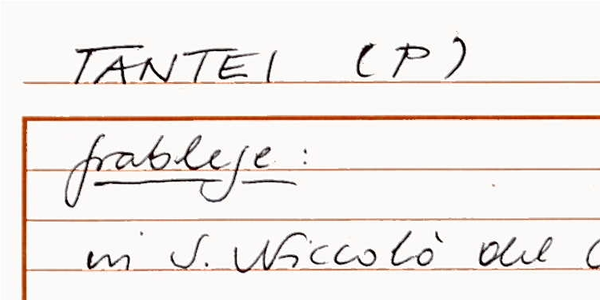 TANTEI (P)
Grablege:
in S. Niccolò del C